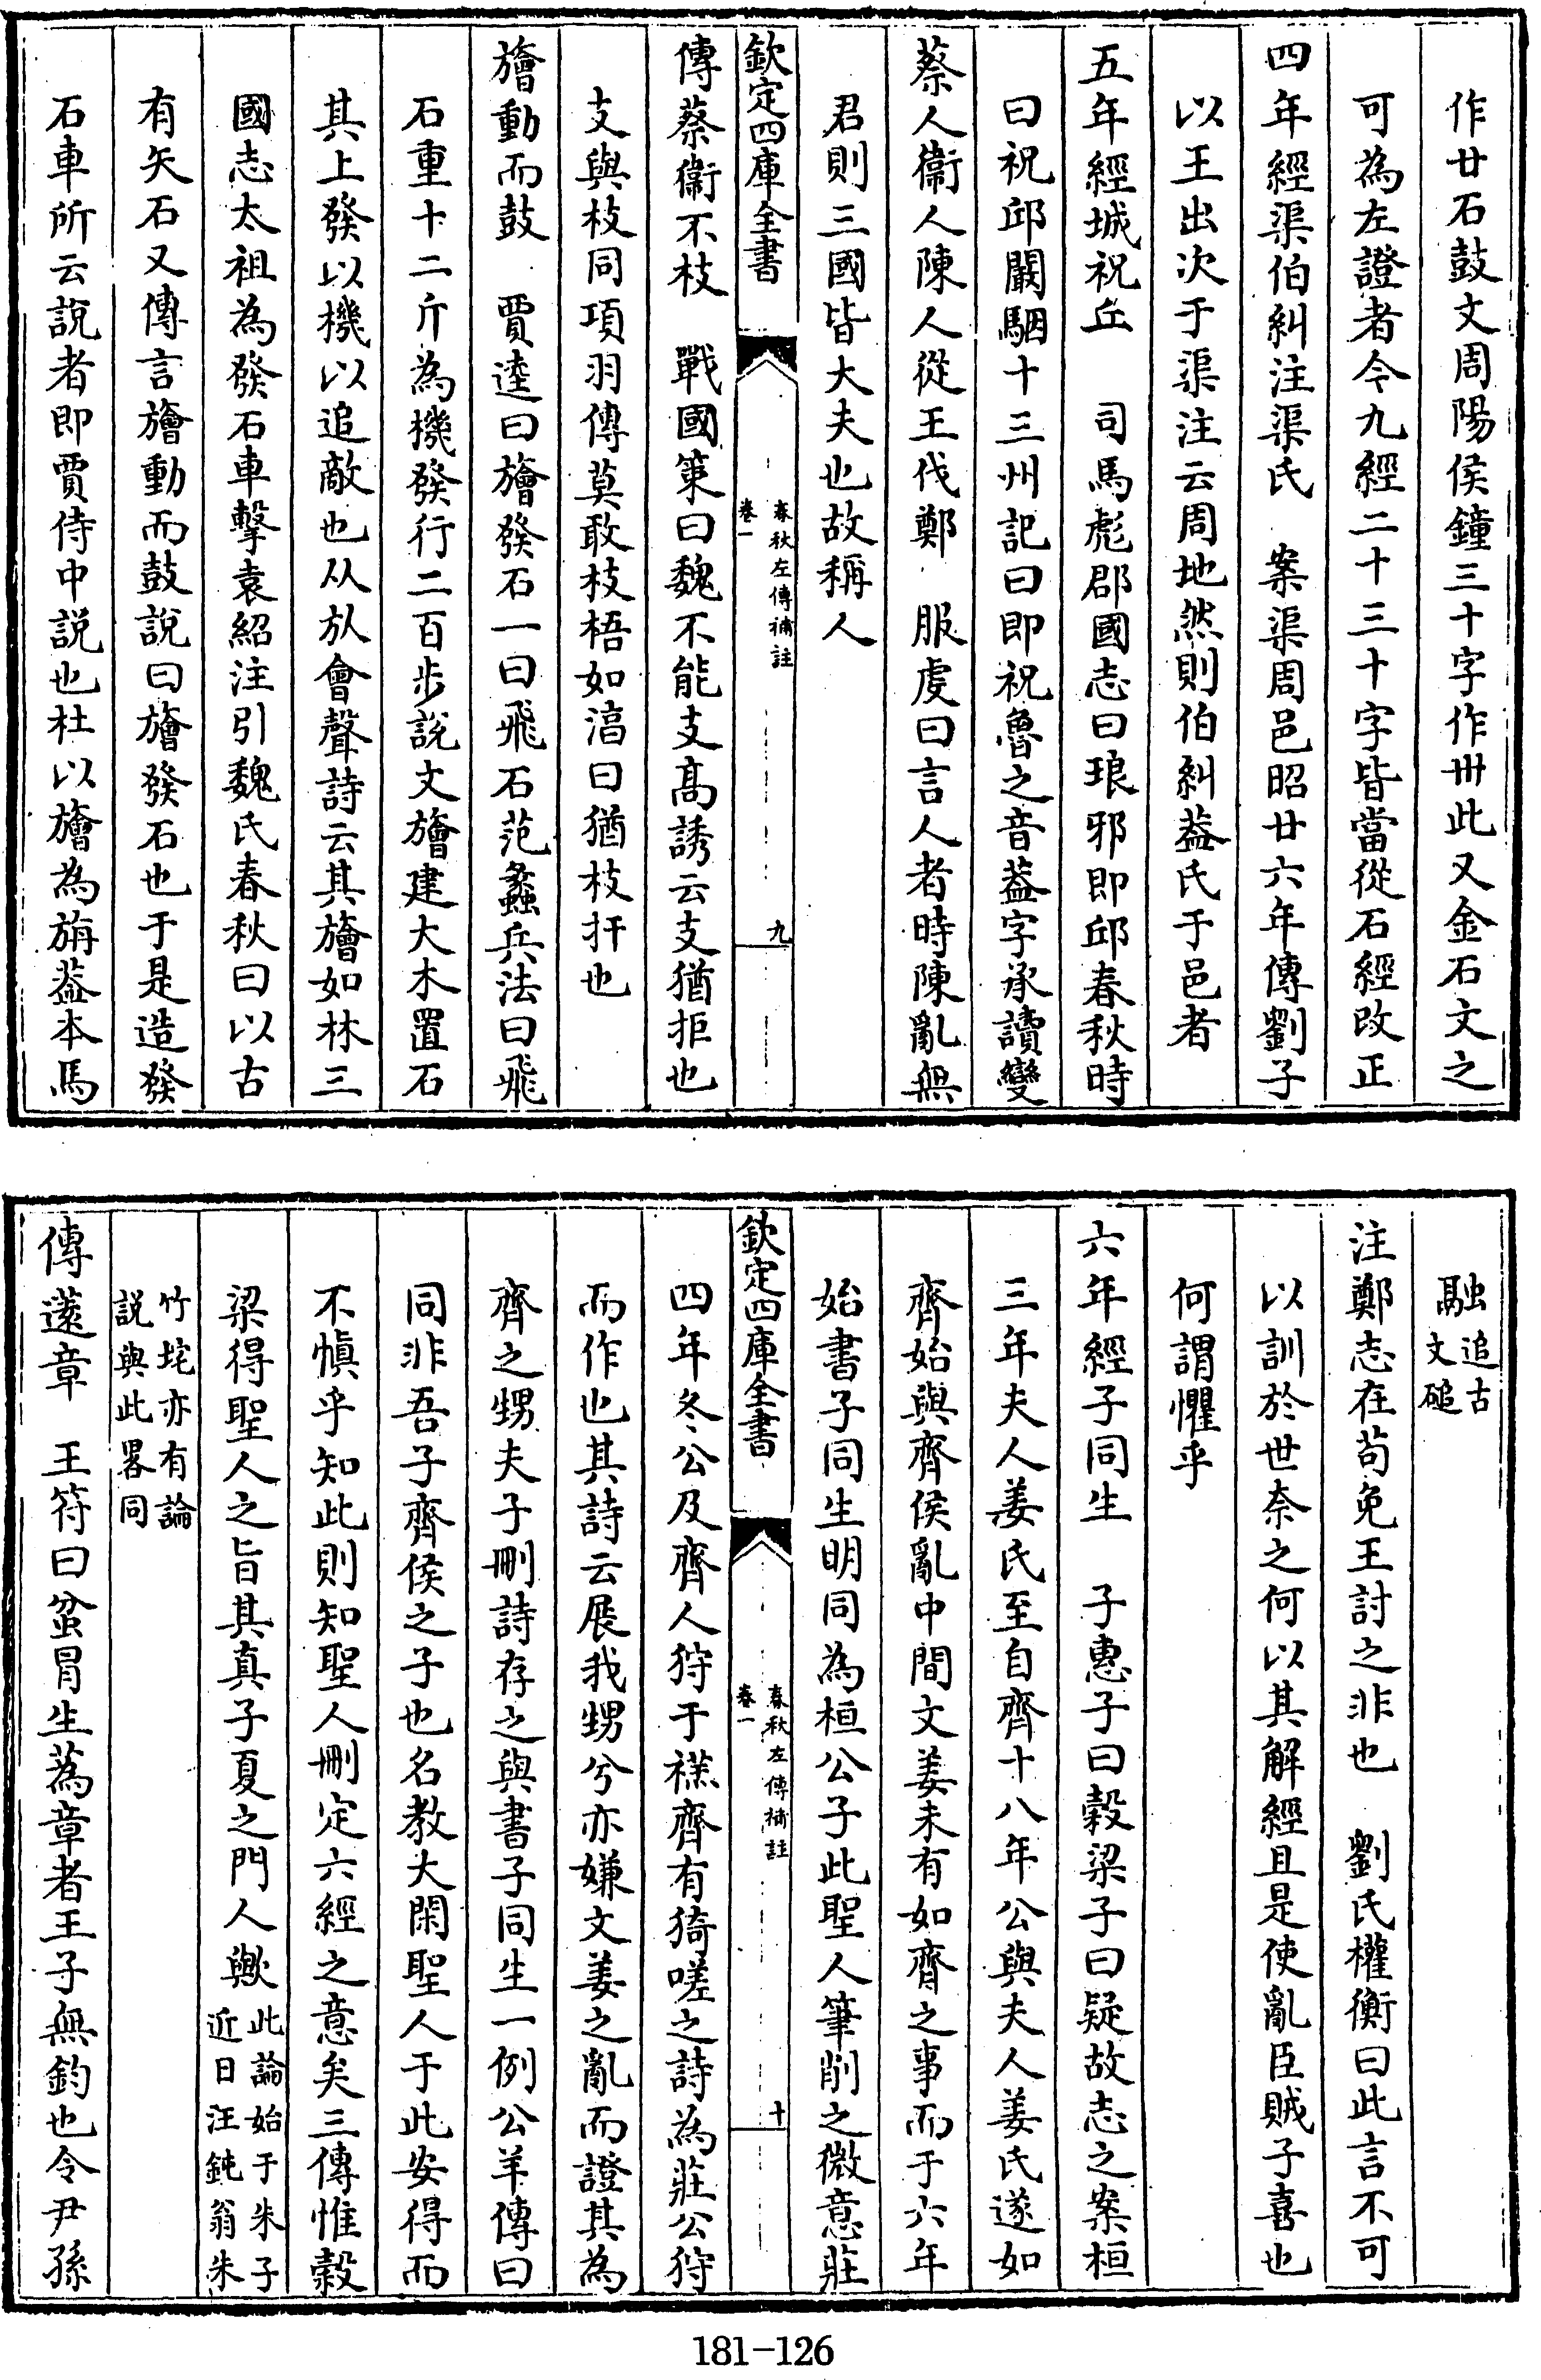 作廿石鼓文周陽侯鐘三十字作卅此又金石文之
可為左證者今九經二十三十字皆當從石經改正
四年經渠伯糾注渠氏　案渠周邑昭廿六年傳劉子
以王出次于渠注云周地然則伯糾葢氏于邑者
五年經城祝丘　司馬彪郡國志曰琅邪即邱春秋時
曰祝邱闞駰十三州記曰即祝魯之音葢字承讀變
蔡人衞人陳人從王伐鄭　服虔曰言人者時陳亂無
君則三國皆大夫也故稱人
欽定四庫全書
春秋左傳補註
卷一
九
傳蔡衞不枝　戰國策曰魏不能支髙誘云支猶拒也
支與枝同項羽傳莫敢枝梧如湻曰猶枝扞也
旝動而鼓　賈逵曰旝發石一曰飛石范蠡兵法曰飛
石重十二斤為機發行二百步說文旝建大木置石
其上發以機以追敵也从㫃會聲詩云其旝如林三
國志太祖為發石車擊袁紹注引魏氏春秋曰以古
有矢石又傳言旝動而鼓說曰旝發石也于是造發
石車所云說者即賈侍中説也杜以旝為旃葢本馬
融追古
文磓
注鄭志在苟免王討之非也　劉氏權衡曰此言不可
以訓於世奈之何以其解經且是使亂臣賊子喜也
何謂懼乎
六年經子同生　子惠子曰榖梁子曰疑故志之案桓
三年夫人姜氏至自齊十八年公與夫人姜氏遂如
齊始與齊侯亂中間文姜未有如齊之事而于六年
始書子同生明同為桓公子此聖人筆削之微意莊
欽定四庫全書
春秋左傳補註
卷一
十
四年冬公及齊人狩于禚齊有猗嗟之詩為莊公狩
而作也其詩云展我甥兮亦嫌文姜之亂而證其為
齊之甥夫子刪詩存之與書子同生一例公羊傳曰
同非吾子齊侯之子也名教大閑聖人于此安得而
不愼乎知此則知聖人刪定六經之意矣三傳惟榖
梁得聖人之旨其真子夏之門人歟此論始于朱子
近日汪鈍翁朱
竹垞亦有論
説與此畧同
傳薳章　王符曰蚠冒生蒍章者王子無鈞也令尹孫
181-126